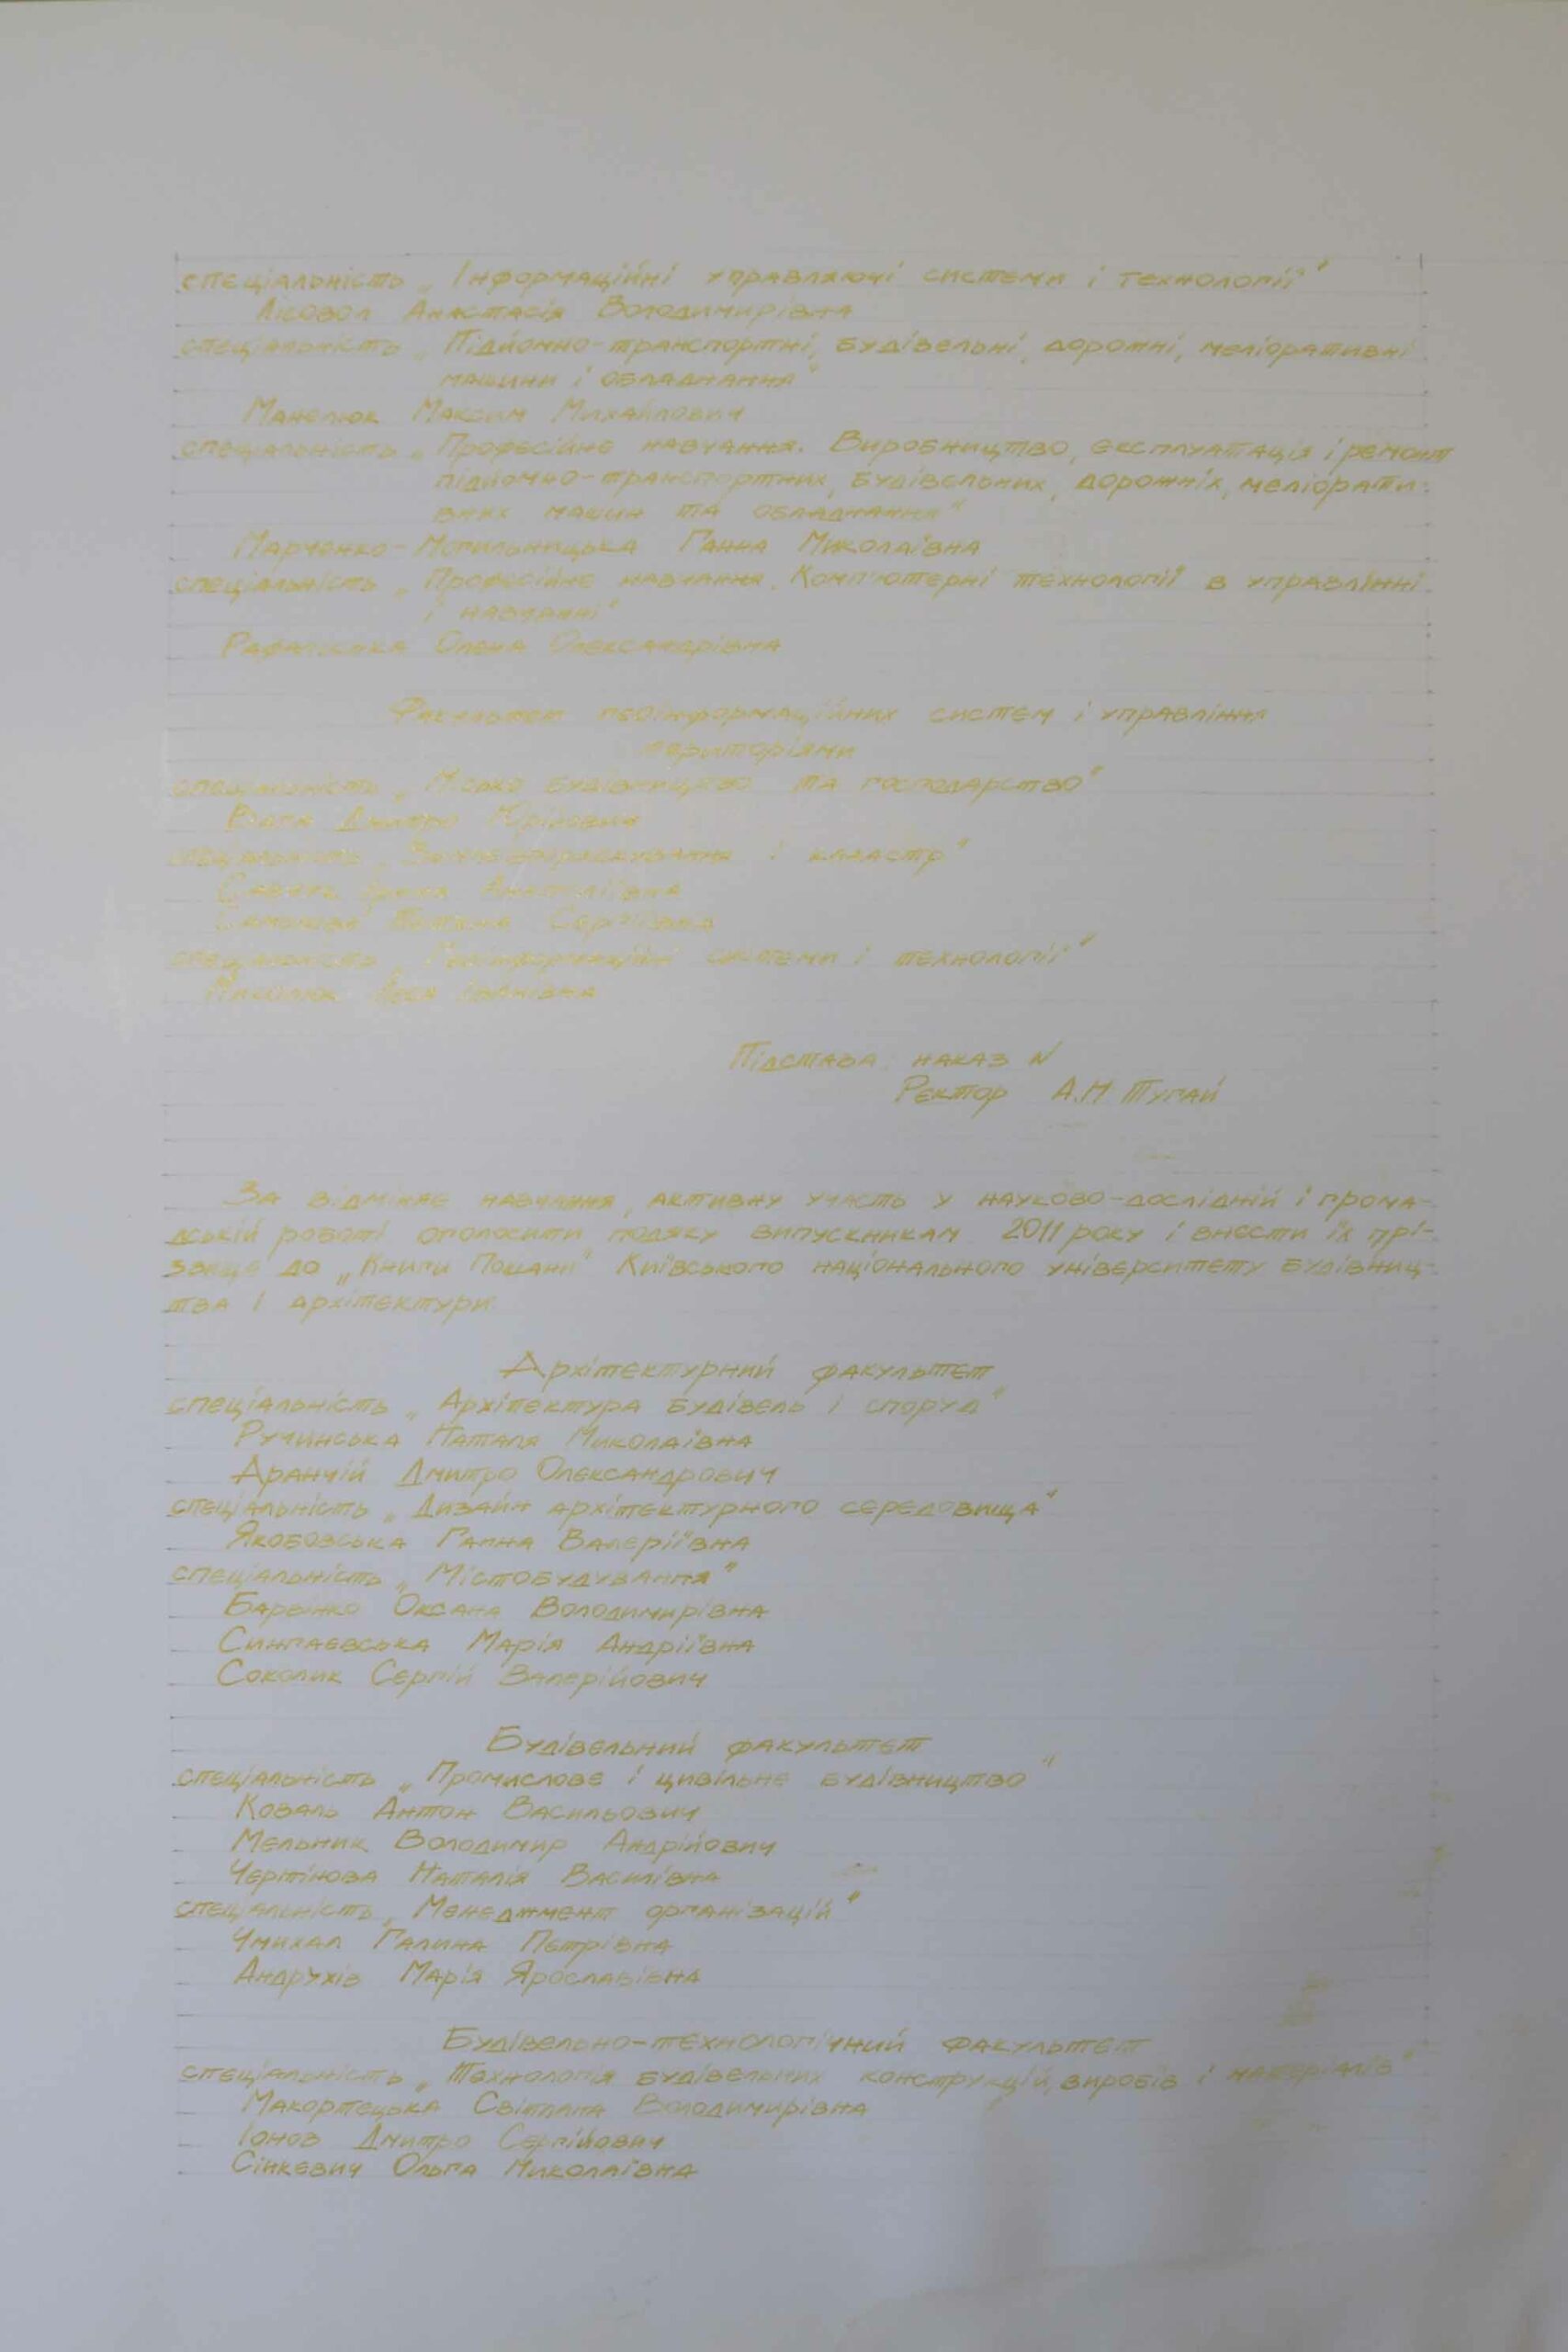 спеціальність „Інформаційні управляючі системи і технології"
Лісовол Анастасія Володимирівна
спеціальність „Підйомно-транспортні, будівельні, дорожні, меліоративні
машини і обладнання"
Манолюк Максим Михайлович
спеціальність „Професійне навчання. Виробництво, експлуатація і ремонт
підйомно-транспортних, будівельних, дорожніх, меліорати-
вних машин та обладнання"
Марченко-Могильницька Ганна Миколаївна
спеціальність „Професійне навчання. Комп'ютерні технології в управлінні
і навчанні"
Рафальська Олена Олександрівна
Факультет геоінформаційних систем і управління
територіями
спеціальність „Міське будівництво та господарство"
Дмитро Юрійович
спеціальність „Землевпорядкування і кадастр"
Савчук Ірина Анатоліївна
Тетяна Сергіївна
спеціальність „Геоінформаційні системи і технології"
Леся Іванівна
Підстава: наказ N
Ректор А.М Тугай
За відмінне навчання, активну участь у науково-дослідній і грома-
дській роботі оголосити подяку випускникам 2011 року і внести їх прі-
звище до „Книги Пошани" Київського національного університету будівниц-
тва і архітектури
Архітектурний факультет
спеціальність „Архітектура будівель і споруд"
Ручинська Наталя Миколаївна
Аранчій Дмитро Олександрович
спеціальність „Дизайн архітектурного середовища"
Якобовська Ганна Валеріївна
спеціальність „Містобудування"
Барвінко Оксана Володимирівна
Сингаєвська Марія Андріївна
Соколик Сергій Валерійович
Будівельний факультет
спеціальність „Промислове і цивільне будівництво"
Коваль Антон Васильович
Мельник Володимир Андрійович
Чертінова Наталія Василівна
спеціальність „Менеджмент організацій"
Чмихал Галина Петрівна
Андрухів Марія Ярославівна
Будівельно-технологічний факультет
спеціальність „Технологія будівельних конструкцій, виробів і матеріалів"
Макортецька Світлана Володимирівна
Іонов Дмитро Сергійович
Сінкевич Ольга Миколаївна